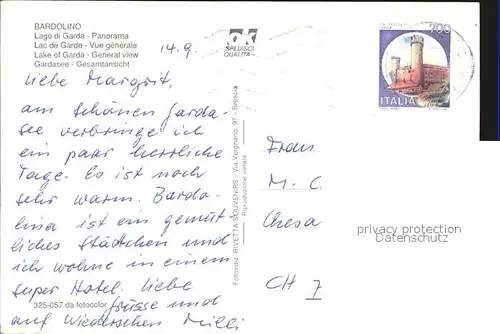 BARDOLINO
Lago di Garda - Panorama
Lac de Garde - Vue générale
Lake of Garda - General view
Gardasee - Gesamtansicht
14.9.
OK
SPEDISCI
QUALITÀ
700
ITALIA
Liebe Margrit,
am schönen Garda-
see verbringe ich
ein paar herrliche
Tage. Es ist noch
sehr warm. Bardo-
lino ist ein gemüt-
liches Städtchen und
ich wohne in einem
super Hotel. Liebe
Grüsse und
auf Wiedersehen Milli
325-057 da fotocolor
Fotoediz. RIVETTA SOUVENIRS - Via Vergnano, 97 - Brescia
Riproduzione vietata
Frau
M. C.
Chesa
CH 7
privacy protection
Datenschutz